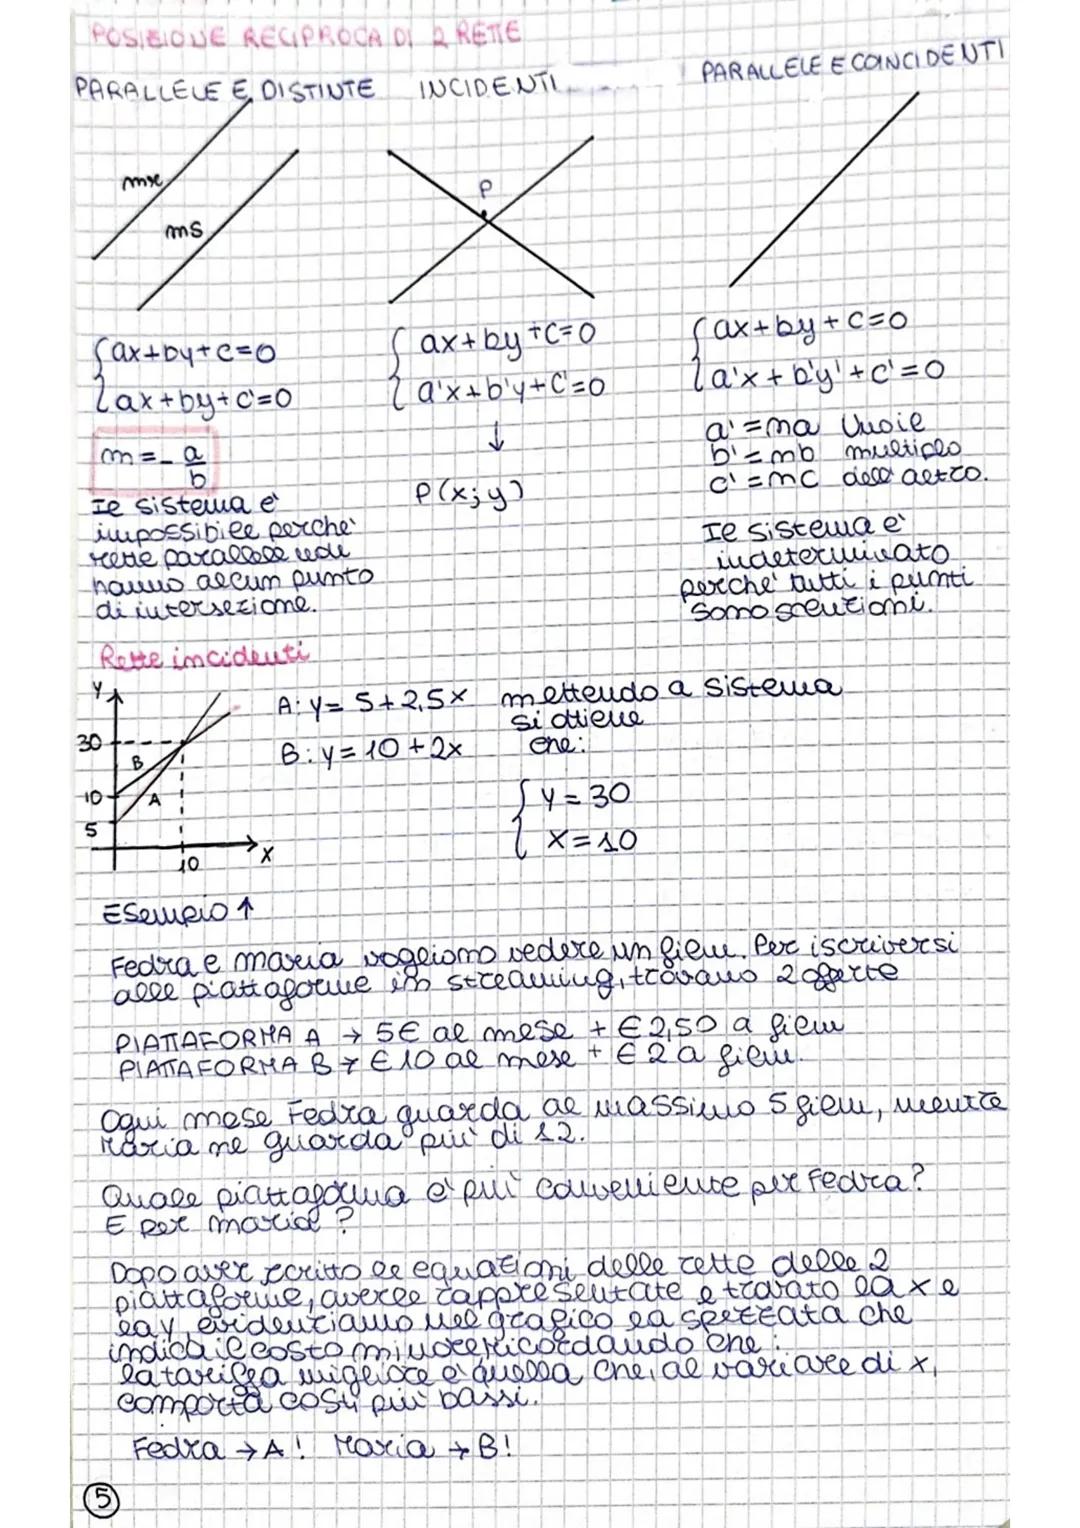 POSIZIONE RECIPROCA DI 2 RETTE
PARALLELE E DISTINTE
INCIDENTI
PARALLELE E COINCIDENTI
mr
ms
P
{ax+by+c=0
ax+by+c'=0
m=-a/b
Il sistema è
impossibile perche'
rette parallele
hanno alcun punto
di intersezione.
{ax+by+c=0
a'x+b'y+c'=0
↓
P(x;y)
{ax+by+c=0
a'x+b'y'+c'=0
a'=ma Uno è
b'=mb multiplo
c'=mc dell'altro.
Il sistema è
indeterminato
perche' tutti i punti
sono soluzioni.
Rette incidenti
Y
30
B
10
A
5
10
X
A: y= 5+2,5x
B: y= 10+2x
mettendo a sistema
si ottiene
che:
{y=30
x=10
Esempio ↑
Fedra e maria vogliono vedere un film. Per iscriversi
alle piattaforme in streaming, trovano 2 offerte
PIATTAFORMA A → 5€ al mese + €2,50 a film
PIATTAFORMA B → €10 al mese + €2 a film.
Ogni mese Fedra guarda al massimo 5 film, mentre
Maria ne guarda più di 12.
Quale piattaforma è più conveniente per Fedra?
E per maria?
Dopo aver scritto le equazioni delle rette delle 2
piattaforme, averle rappresentate e trovato la x e
la y, evidenziamo nel grafico la spezzata che
indica il costo minore ricordando che:
la tariffa migliore è quella che, al variare di x,
comporta costi più bassi.
Fedra → A! Maria → B!
5